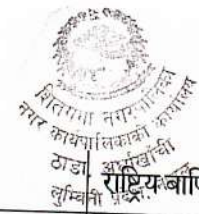 शितगंगा नगरपालिका
नगर कार्यपालिकाको कार्यालय
ठाडा, अर्घाखाँची
लुम्बिनी प्रदेश
राष्ट्रिय